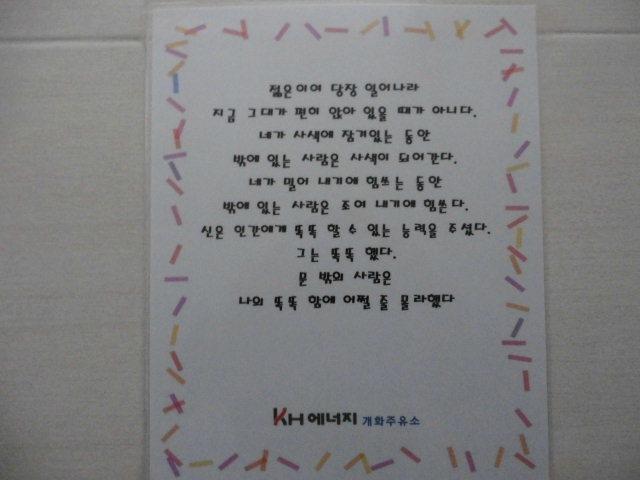 젊은이여 당장 일어나라
지금 그대가 편히 앉아 있을 때가 아니다.
네가 사색에 잠겨있는 동안
밖에 있는 사람은 사색이 되어간다.
네가 밀어 내기에 힘쓰는 동안
밖에 있는 사람은 조여 내기에 힘쓴다.
신은 인간에게 똑똑 할 수 있는 능력을 주셨다.
그는 똑똑 했다.
문 밖의 사람은
나의 똑똑 함에 어쩔 줄 몰라했다
KH에너지 개화주유소